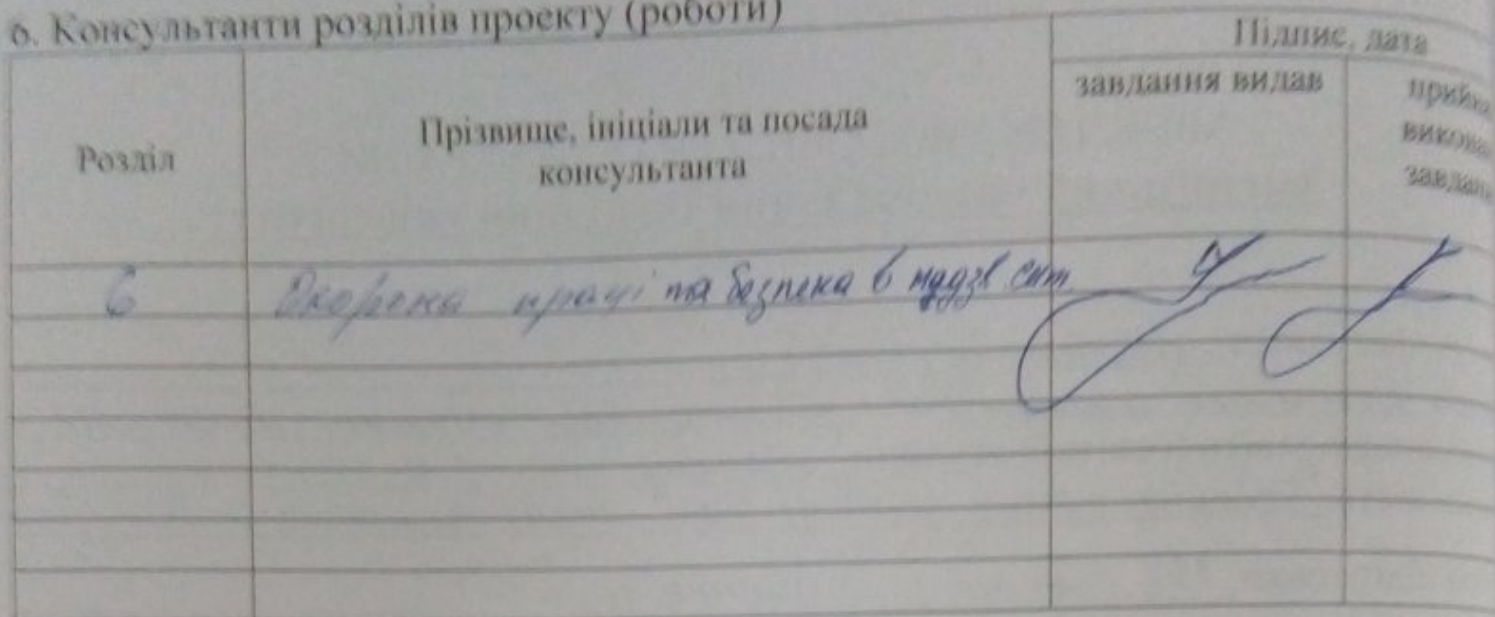 6. Консультанти розділів проекту (роботи)
Розділ
Прізвище, ініціали та посада
консультанта
Підпис, дата
завдання видав
прийн
викона
завдан
6
Охорона праці та безпека в надзв сит